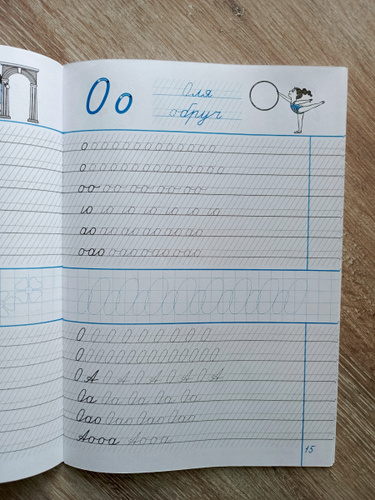 О о
Оля
обруч
о о о о о о о о о о о о о
о о о о о о о о о о о о о о
оо оо оо оо оо
ао ао ао ао ао ао ао
оао оао оао оао
О О О О О О О О О
О О О О О О О О О О О О О О
О А О А О А О А
Оа Оа Оа Оа Оа
Оао Оао Оао Оао
Аооа Аооа
15